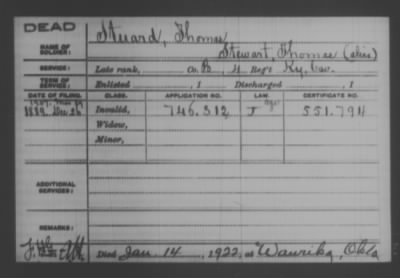 DEAD
NAME OF SOLDIER: Stuard, Thomas
Stewart, Thomas (alias)
SERVICE: Late rank, Co. B, 4 Reg't Ky. Cav.
TERM OF SERVICE: Enlisted , 1 Discharged , 1
DATE OF FILING. CLASS. APPLICATION NO. LAW. CERTIFICATE NO.
1889. Dec 26 Invalid, 746.312 J 551.794
Widow,
Minor,
ADDITIONAL SERVICES:
REMARKS:
Died Jan. 14, 1922, at Waurika, Okla